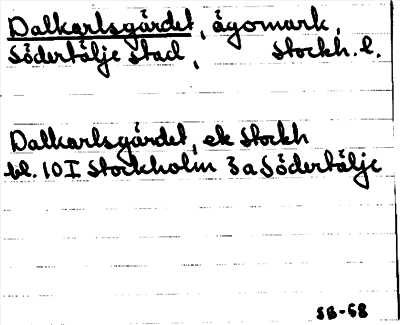 Dalkarlsgärdet, ägomark,
Södertälje stad, Stockh. l.
Dalkarlsgärdet, ek Stockh
bl. 10 I Stockholm 3 a Södertälje
SB-68